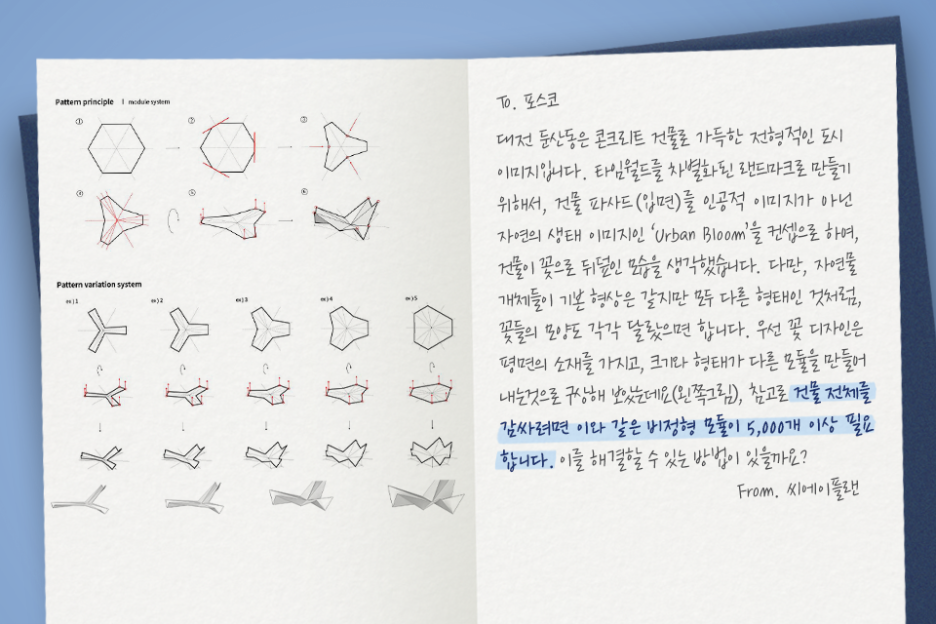 Pattern principle | module system
① ② ③
④ ⑤ ⑥
Pattern variation system
ex)1 ex)2 ex)3 ex)4 ex)5
To. 포스코
대전 둔산동은 콘크리트 건물로 가득한 전형적인 도시
이미지입니다. 타임월드를 차별화된 랜드마크로 만들기
위해서, 건물 파사드(입면)를 인공적 이미지가 아닌
자연의 생태 이미지인 ‘Urban Bloom’을 컨셉으로 하여,
건물이 꽃으로 뒤덮인 모습을 생각했습니다. 다만, 자연물
개체들이 기본 형상은 같지만 모두 다른 형태인 것처럼,
꽃들의 모양도 각각 달랐으면 합니다. 우선 꽃 디자인은
평면의 소재를 가지고, 크기와 형태가 다른 모듈을 만들어
내는것으로 구상해 보았는데요(왼쪽그림), 참고로 건물 전체를
감싸려면 이와 같은 비정형 모듈이 5,000개 이상 필요
합니다. 이를 해결할 수 있는 방법이 있을까요?
From. 씨에이플랜